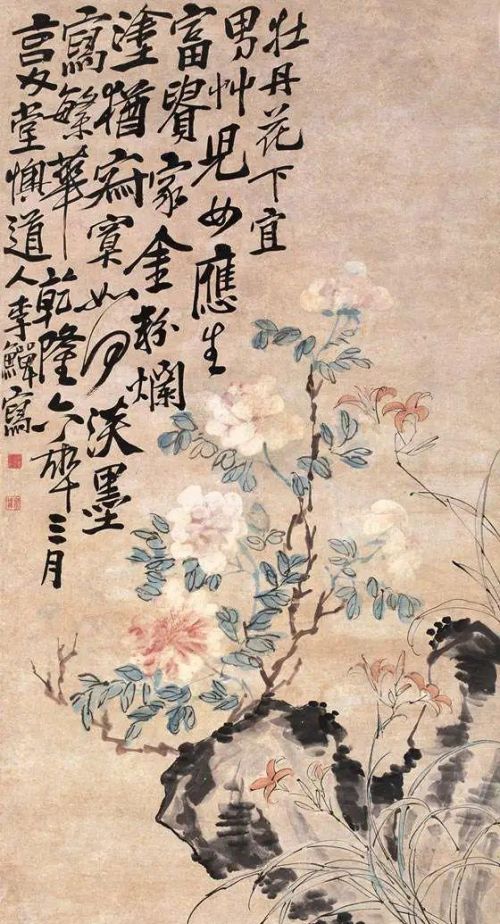 牡丹花下宜
男艸兒女應生
富貴家金粉爛
塗猶寂寞如何淡墨
寫繁華乾隆年三月
堂懊道人李鱓寫